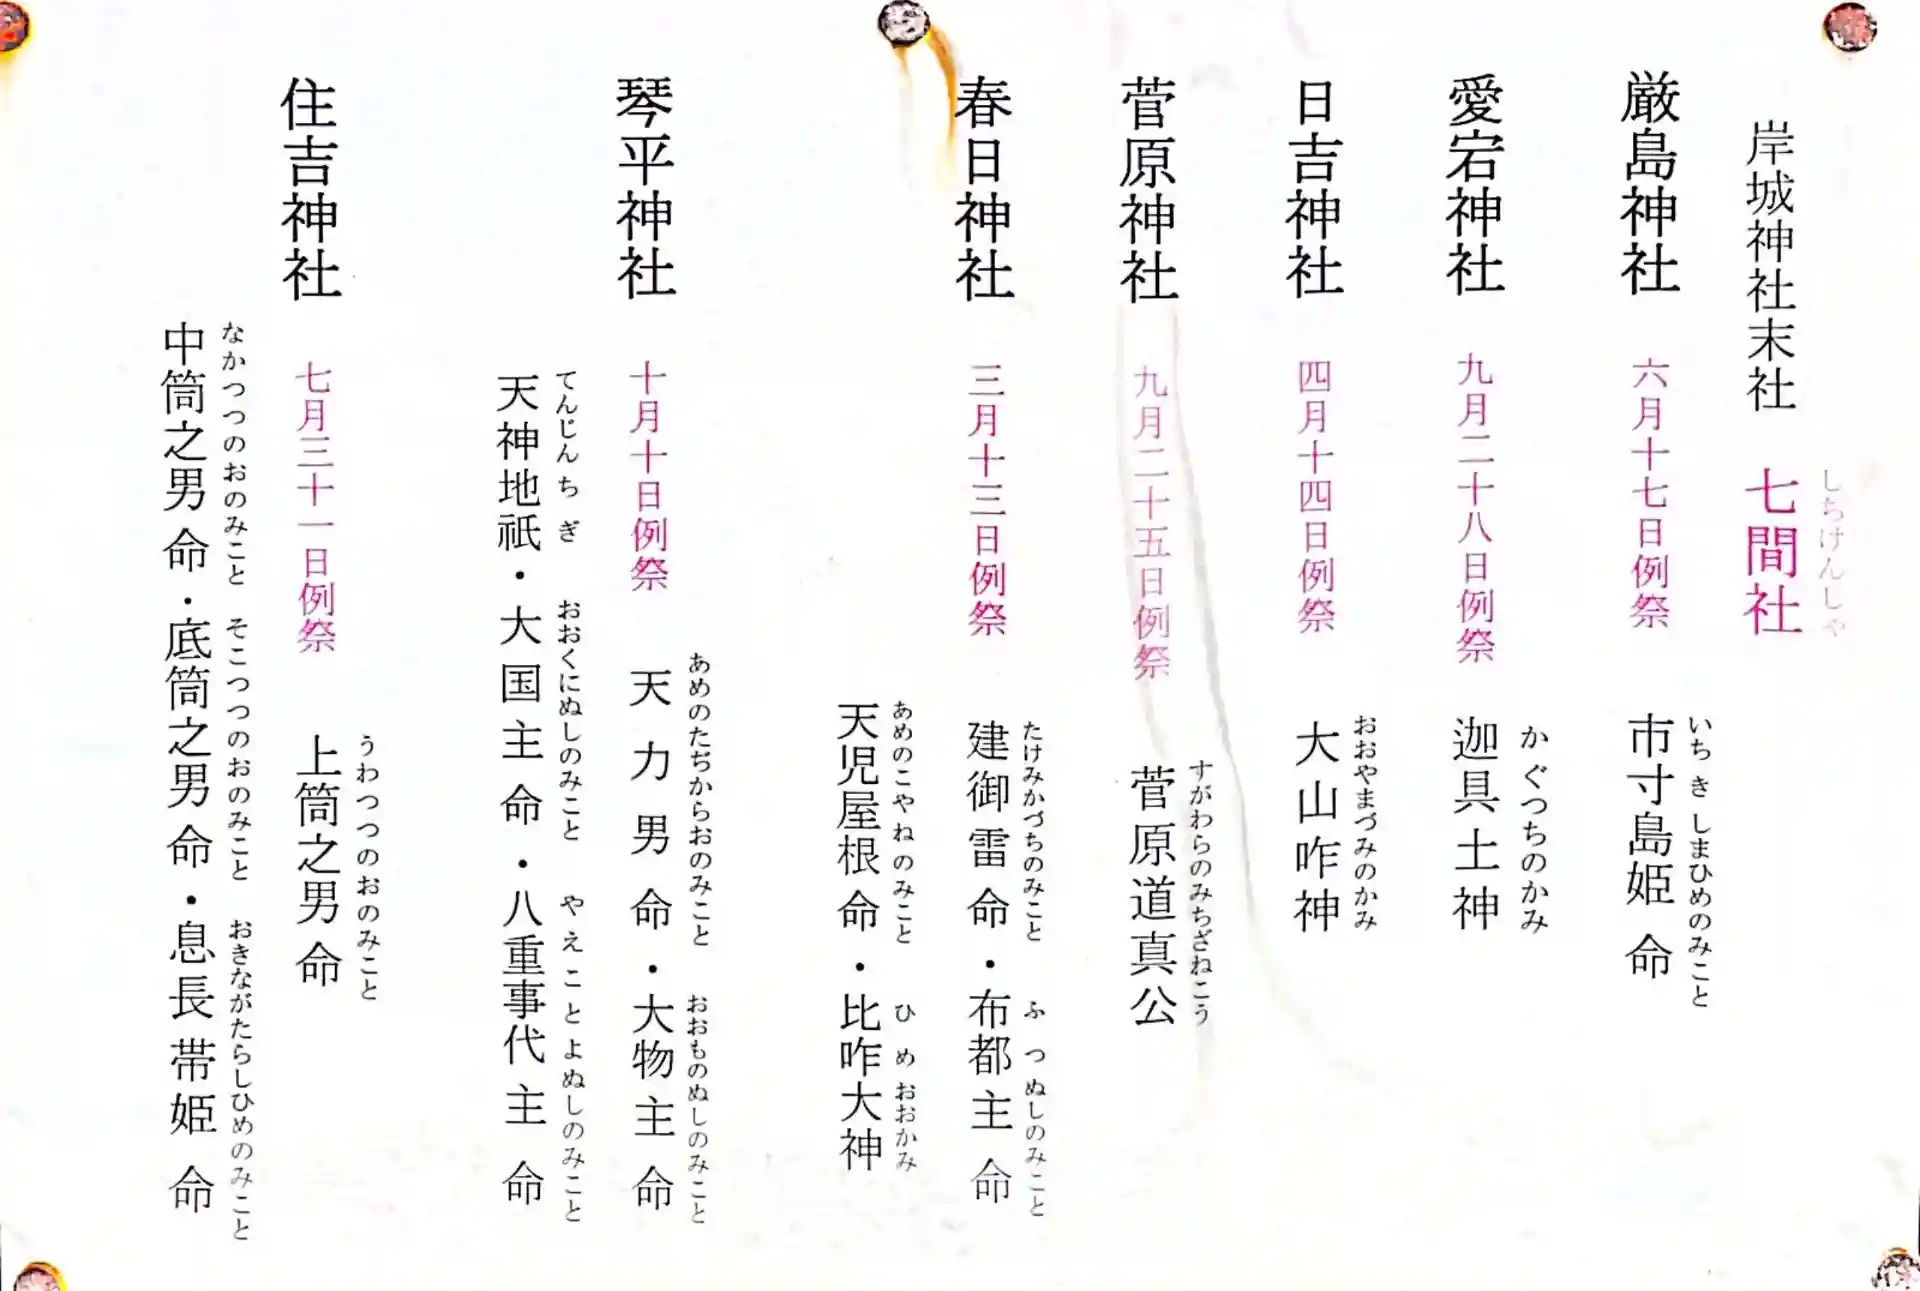 岸城神社末社 七間社
しちけんしゃ
厳島神社 六月十七日例祭 市寸島姫命
いちきしまひめのみこと
愛宕神社 九月二十八日例祭 迦具土神
かぐつちのかみ
日吉神社 四月十四日例祭 大山咋神
おおやまづみのかみ
菅原神社 九月二十五日例祭 菅原道真公
すがわらのみちざねこう
春日神社 三月十三日例祭 建御雷命・布都主命
たけみかづちのみこと ふつぬしのみこと
天児屋根命・比咋大神
あめのこやねのみこと ひめおおかみ
琴平神社 十月十日例祭 天力男命・大物主命
あめのたぢからおのみこと おおものぬしのみこと
天神地祇・大国主命・八重事代主命
てんじんちぎ おおくにぬしのみこと やえことよぬしのみこと
住吉神社 七月三十一日例祭 上筒之男命
うわつつのおのみこと
中筒之男命・底筒之男命・息長帯姫命
なかつつのおのみこと そこつつのおのみこと おきながたらしひめのみこと